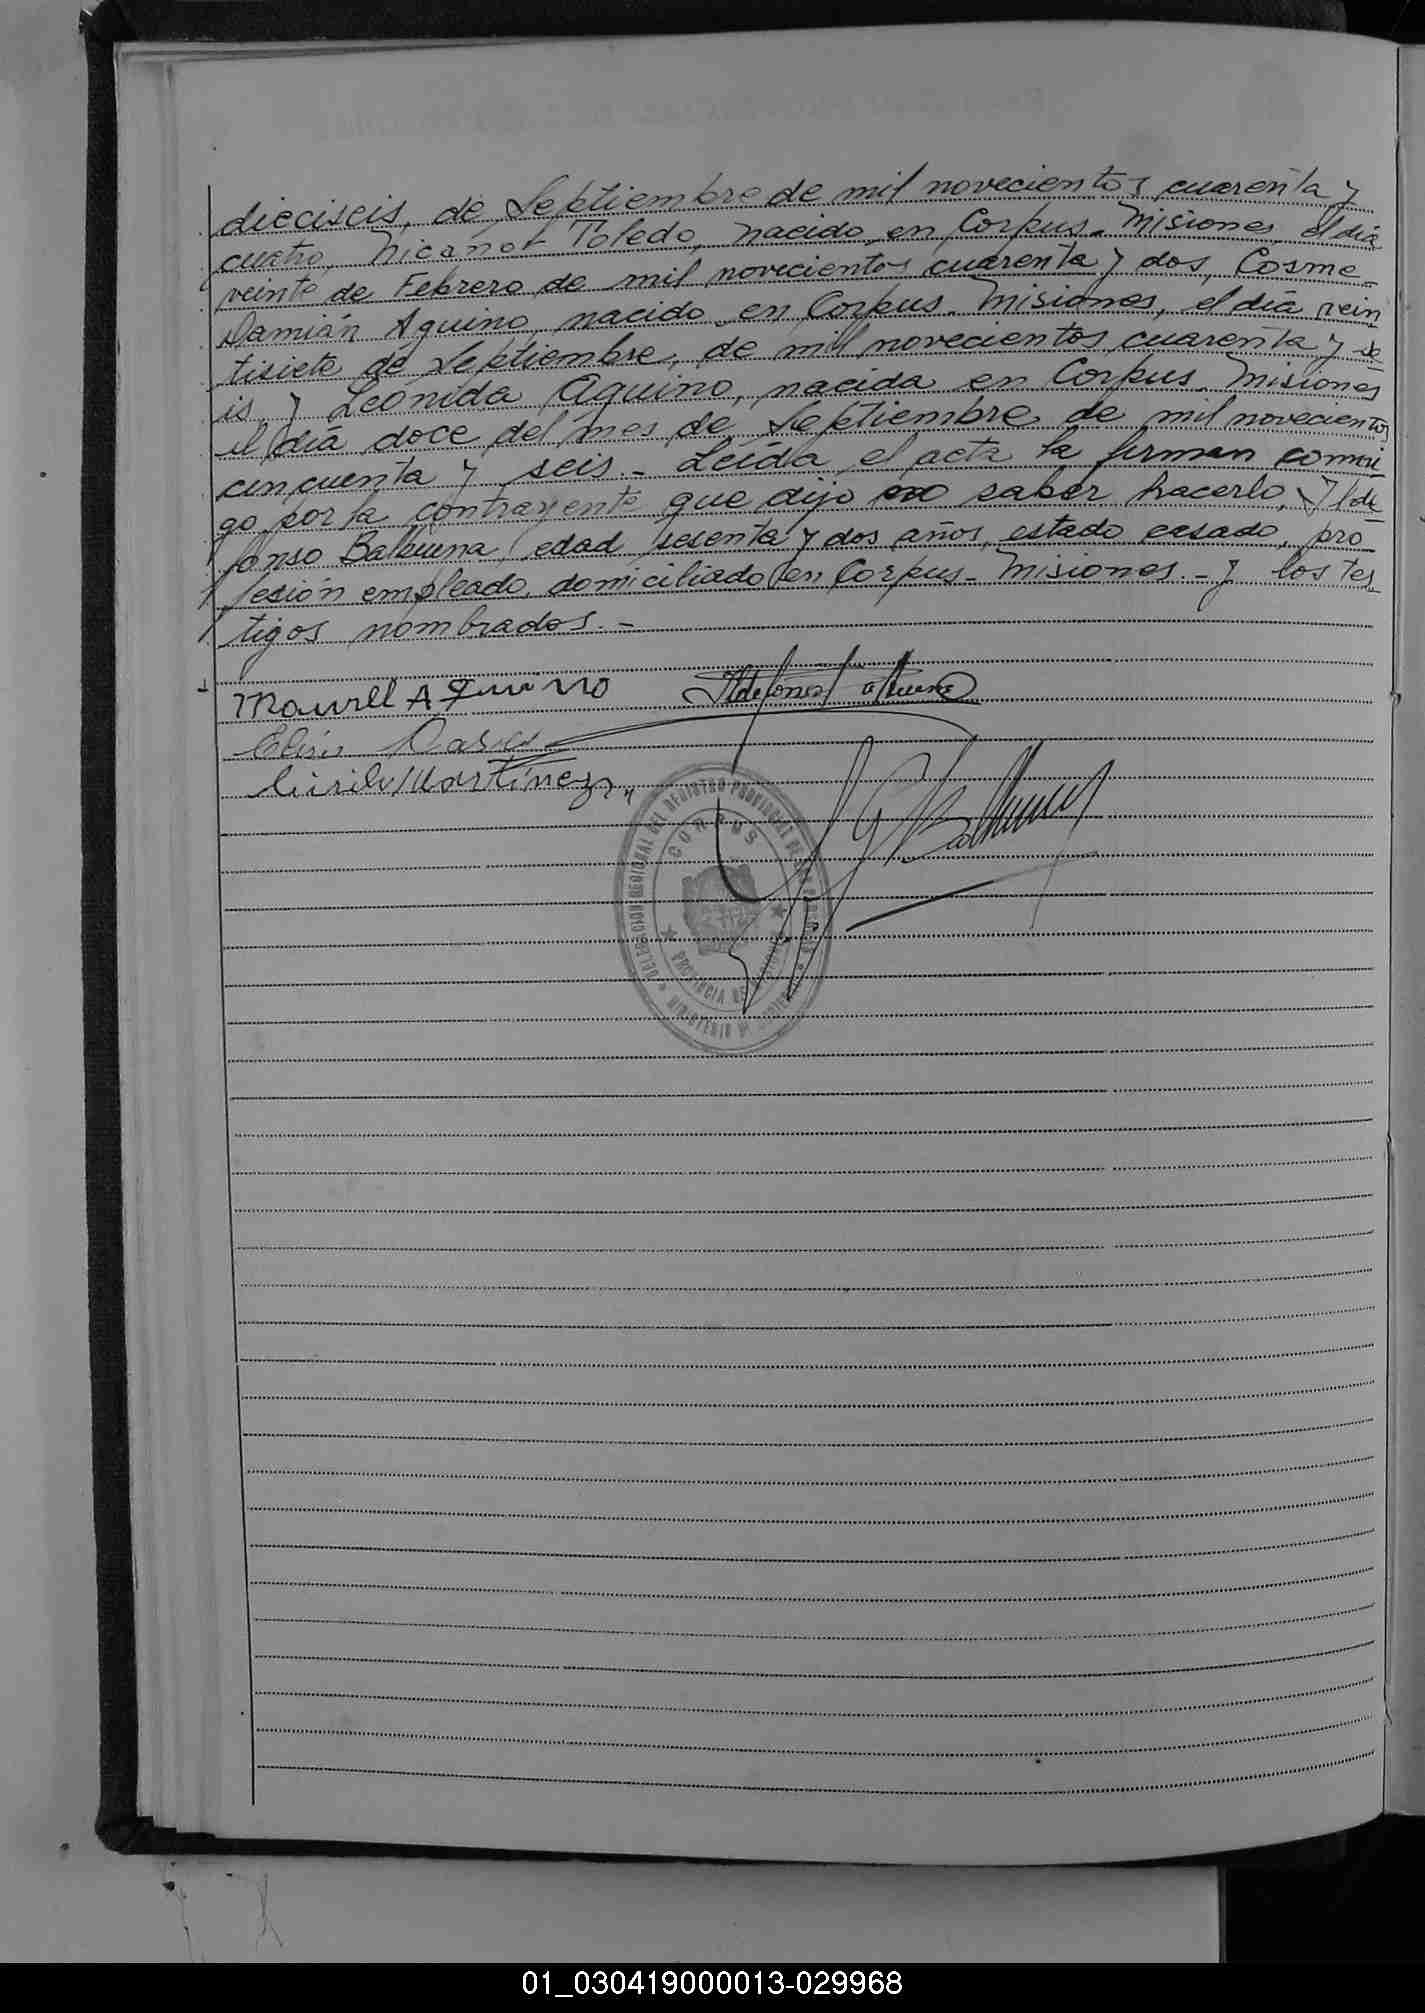 dieciseis, de Septiembre de mil novecientos cuarenta y
cuatro, Nicanor Toledo, nacido en Corpus. Misiones, el día
veinte de Febrero de mil novecientos cuarenta y dos, Cosme
Damián Aquino, nacido en Corpus. Misiones, el día vein
tisiete de Septiembre, de mil novecientos cuarenta y se
is, y Leónida Aquino, nacida en Corpus. Misiones
el día doce del mes de Septiembre de mil novecientos
cincuenta y seis.- Leída el acta la firman conmi
go por la contrayente que dijo no saber hacerlo, Ilde
fonso Balbuena, edad sesenta y dos años, estado casado, pro
fesión empleado, domiciliado en Corpus- Misiones.- y los tes
tigos nombrados.-
Manuel Aquino
Cirilo Martínez
DELEGACION REGIONAL DEL REGISTRO PROVINCIAL DE LAS PERSONAS
CORPUS
PROVINCIA DE MISIONES
MINISTERIO DE GOBIERNO
01_030419000013-029968